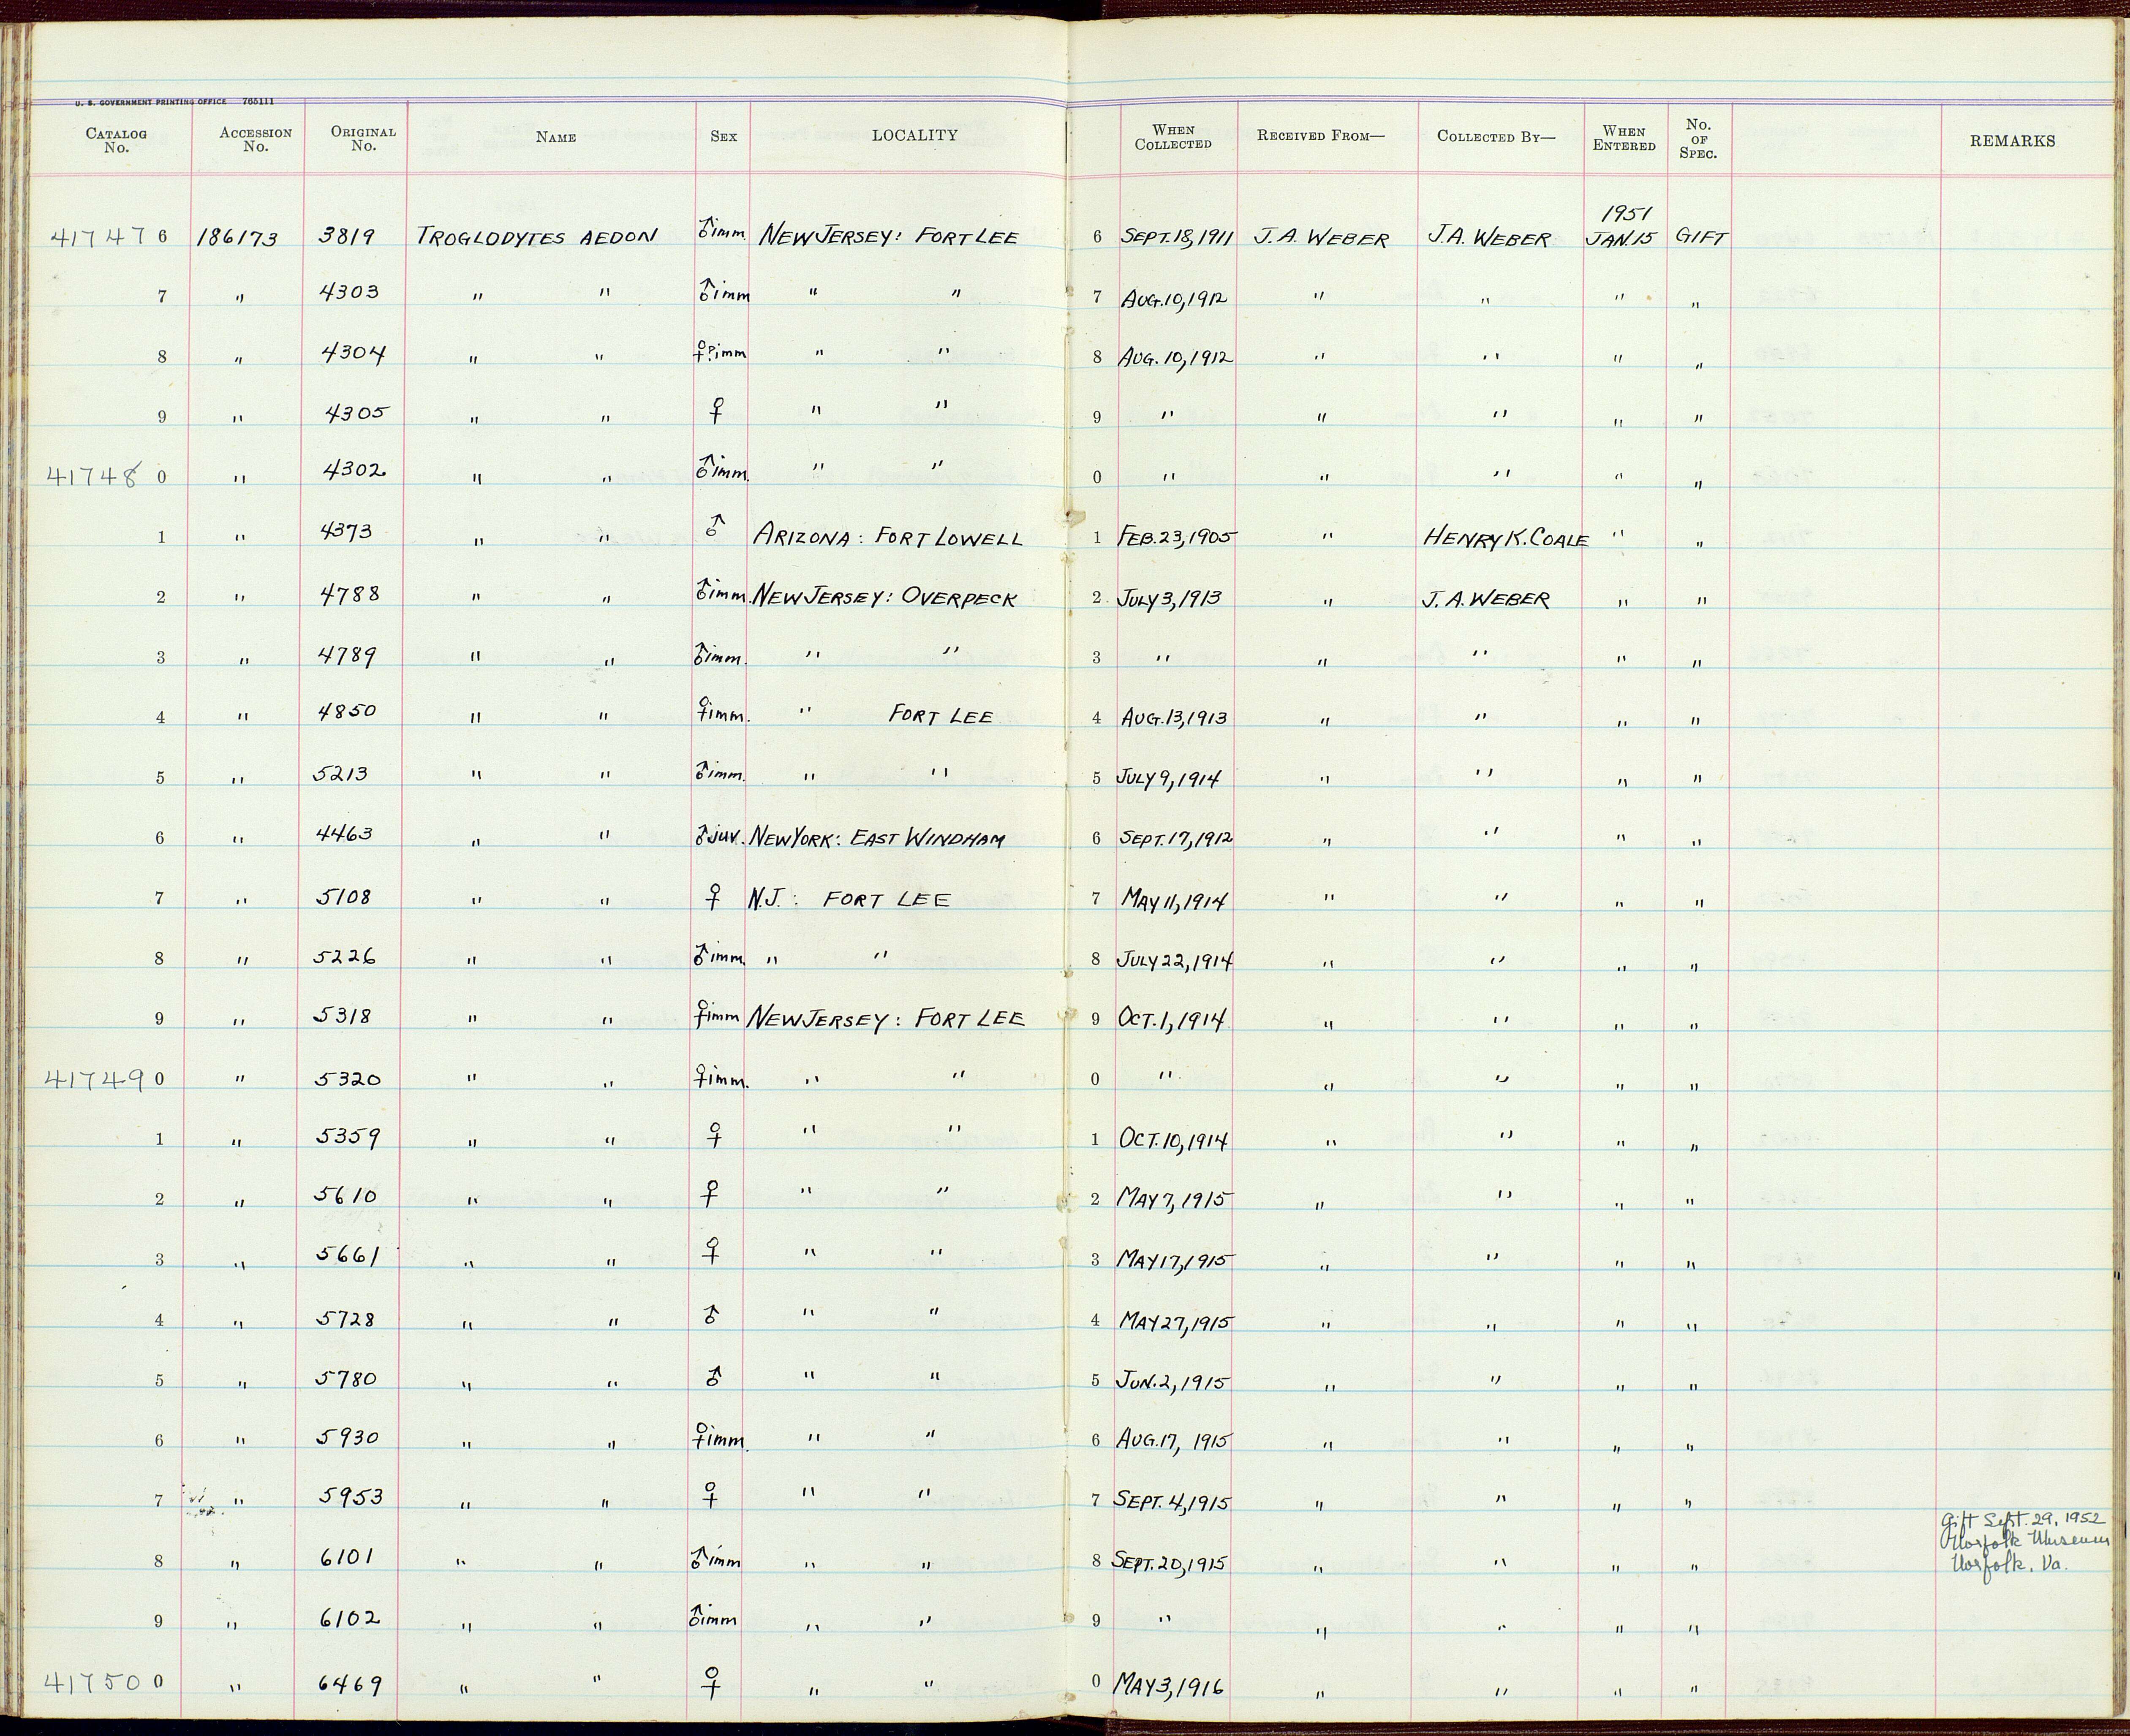 U. S. GOVERNMENT PRINTING OFFICE 765111
CATALOG No. ACCESSION No. ORIGINAL No. NAME SEX LOCALITY WHEN COLLECTED RECEIVED FROM— COLLECTED BY— WHEN ENTERED No. OF SPEC. REMARKS
1951
417476 186173 3819 TROGLODYTES AEDON ♂imm. NEW JERSEY: FORT LEE 6 SEPT.18,1911 J.A. WEBER J.A. WEBER JAN.15 GIFT
7 " 4303 " " ♂imm " " 7 AUG.10,1912 " " " "
8 " 4304 " " ♀?imm " " 8 AUG.10,1912 " " " "
9 " 4305 " " ♀ " " 9 " " " " "
417480 " 4302 " " ♂imm. " " 0 " " " " "
1 " 4373 " " ♂ ARIZONA: FORT LOWELL 1 FEB.23,1905 " HENRY K. COALE " "
2 " 4788 " " ♂imm. NEW JERSEY: OVERPECK 2 JULY 3,1913 " J.A. WEBER " "
3 " 4789 " " ♂imm. " " 3 " " " " "
4 " 4850 " " ♀imm. " FORT LEE 4 AUG.13,1913 " " " "
5 " 5213 " " ♂imm. " " 5 JULY 9,1914 " " " "
6 " 4463 " " ♂juv. NEW YORK: EAST WINDHAM 6 SEPT.17,1912 " " " "
7 " 5108 " " ♀ N.J.: FORT LEE 7 MAY 11,1914 " " " "
8 " 5226 " " ♂imm. " " 8 JULY 22,1914 " " " "
9 " 5318 " " ♀imm NEW JERSEY: FORT LEE 9 OCT.1,1914 " " " "
417490 " 5320 " " ♀imm. " " 0 " " " " "
1 " 5359 " " ♀ " " 1 OCT.10,1914 " " " "
2 " 5610 " " ♀ " " 2 MAY 7,1915 " " " "
3 " 5661 " " ♀ " " 3 MAY 17,1915 " " " "
4 " 5728 " " ♂ " " 4 MAY 27,1915 " " " "
5 " 5780 " " ♂ " " 5 JUN.2,1915 " " " "
6 " 5930 " " ♀imm. " " 6 AUG.17, 1915 " " " "
7 " 5953 " " ♀ " " 7 SEPT.4,1915 " " " "
Gift Sept. 29, 1952
Norfolk Museum
8 " 6101 " " ♂imm " " 8 SEPT.20,1915 " " " " Norfolk, Va.
9 " 6102 " " ♂imm " " 9 " " " " "
417500 " 6469 " " ♀ " " 0 MAY 3,1916 " " " "